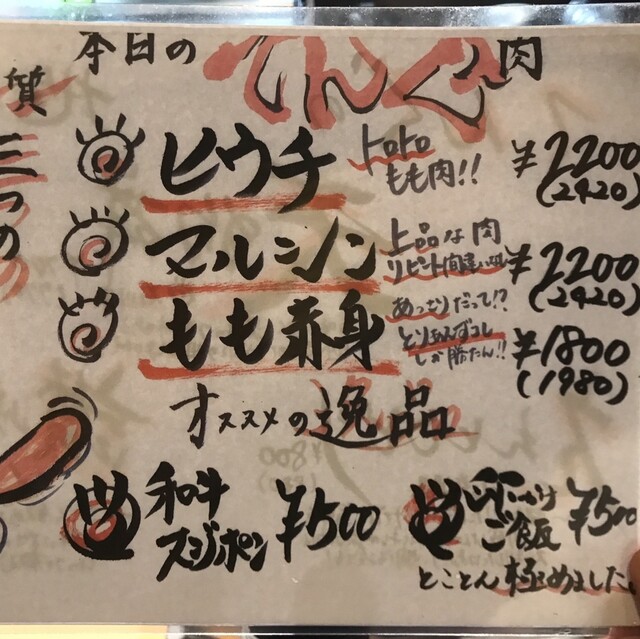 本日の てんぐ 肉
ヒウチ トロトロ もも肉!! ¥2200
(2420)
マルシン 上品な肉 リピート間違い ¥2200
(2420)
もも赤身 あっさりだって!? とりあえずコレ しか勝たん!! ¥1800
(1980)
オススメの逸品
和牛 スジポン ¥500
ぶっかけ ご飯 ¥500
とことん極めました
質
三つの